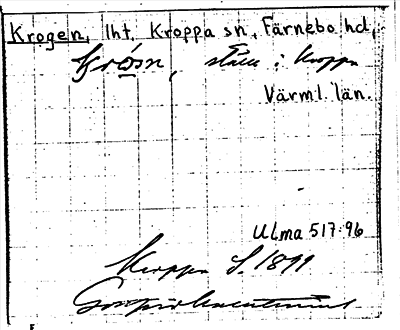 Krogen, lht, Kroppa sn, Färnebo hd,
Krösn, ställe i Kroppa
Värml. län.
Ulma 517:96
Kroppa S. 1899